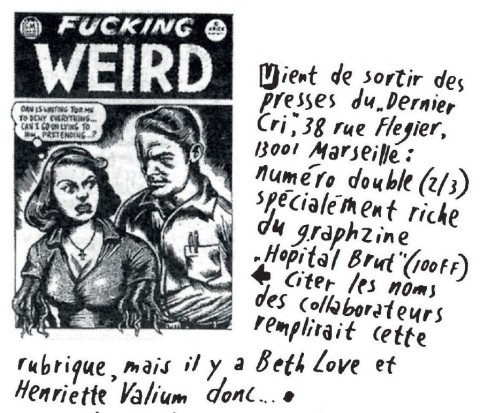 FUCKING
WEIRD
DAN IS WAITING FOR ME
TO DENY EVERYTHING...
CAN I GO ON LYING TO
HIM, PRETENDING...?
Vient de sortir des
presses du „Dernier
Cri", 38 rue Flegier,
13001 Marseille :
numéro double (2/3)
spécialement riche
du graphzine
„Hopital Brut" (100FF)
← Citer les noms
des collaborateurs
remplirait cette
rubrique, mais il y a Beth Love et
Henriette Valium donc... •